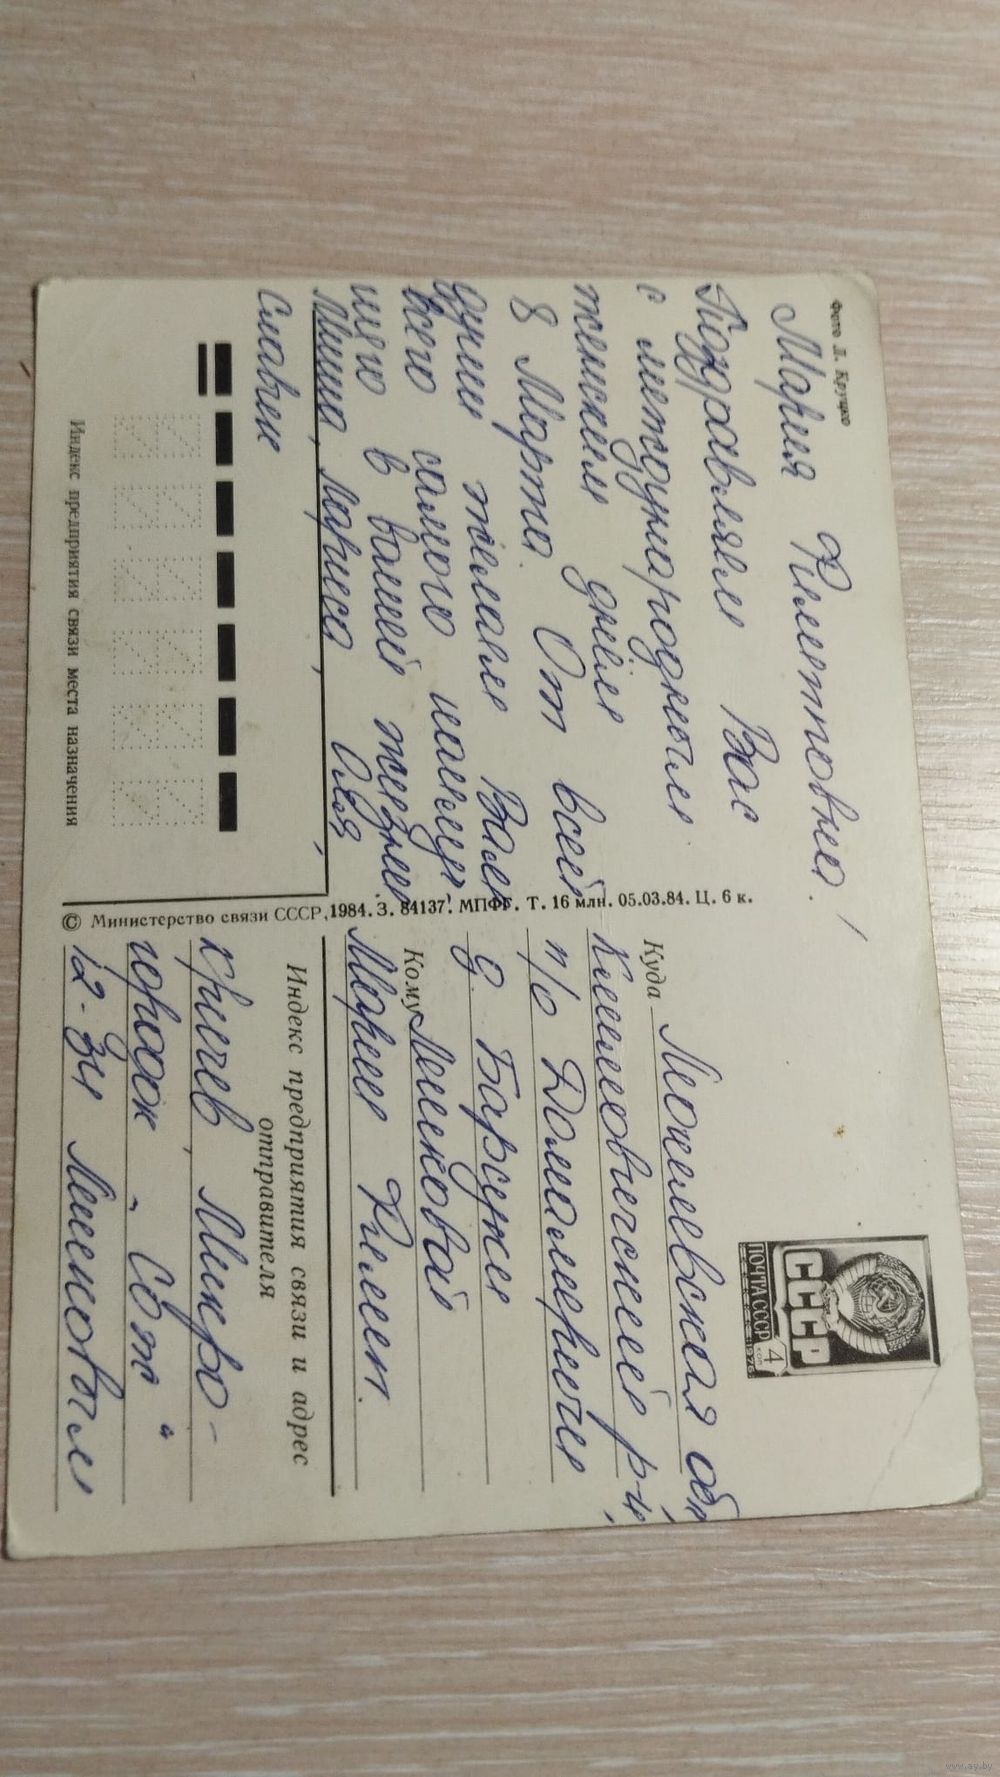 Фото Л. Круцко
Мария Филиповна!
Поздравляем Вас
с международным
женским днём
8 Марта. От всей
души желаем Вам
всего самого наилуч-
шего в вашей жизни.
Миша, Лариса, Оля,
Славик
Индекс предприятия связи места назначения
© Министерство связи СССР, 1984. З. 84137. МПФГ. Т. 16 млн. 05.03.84. Ц. 6 к.
СССР
ПОЧТА СССР
4 КОП
1976
Куда Могилевская обл
Климовичский р-н,
п/о Домамеричи
д. Барсуки
Кому Мишковой
Марии Филип.
Индекс предприятия связи и адрес
отправителя
Кричев, Микро-
городок "Сож"
12-34 Мишковым
www.ay.by